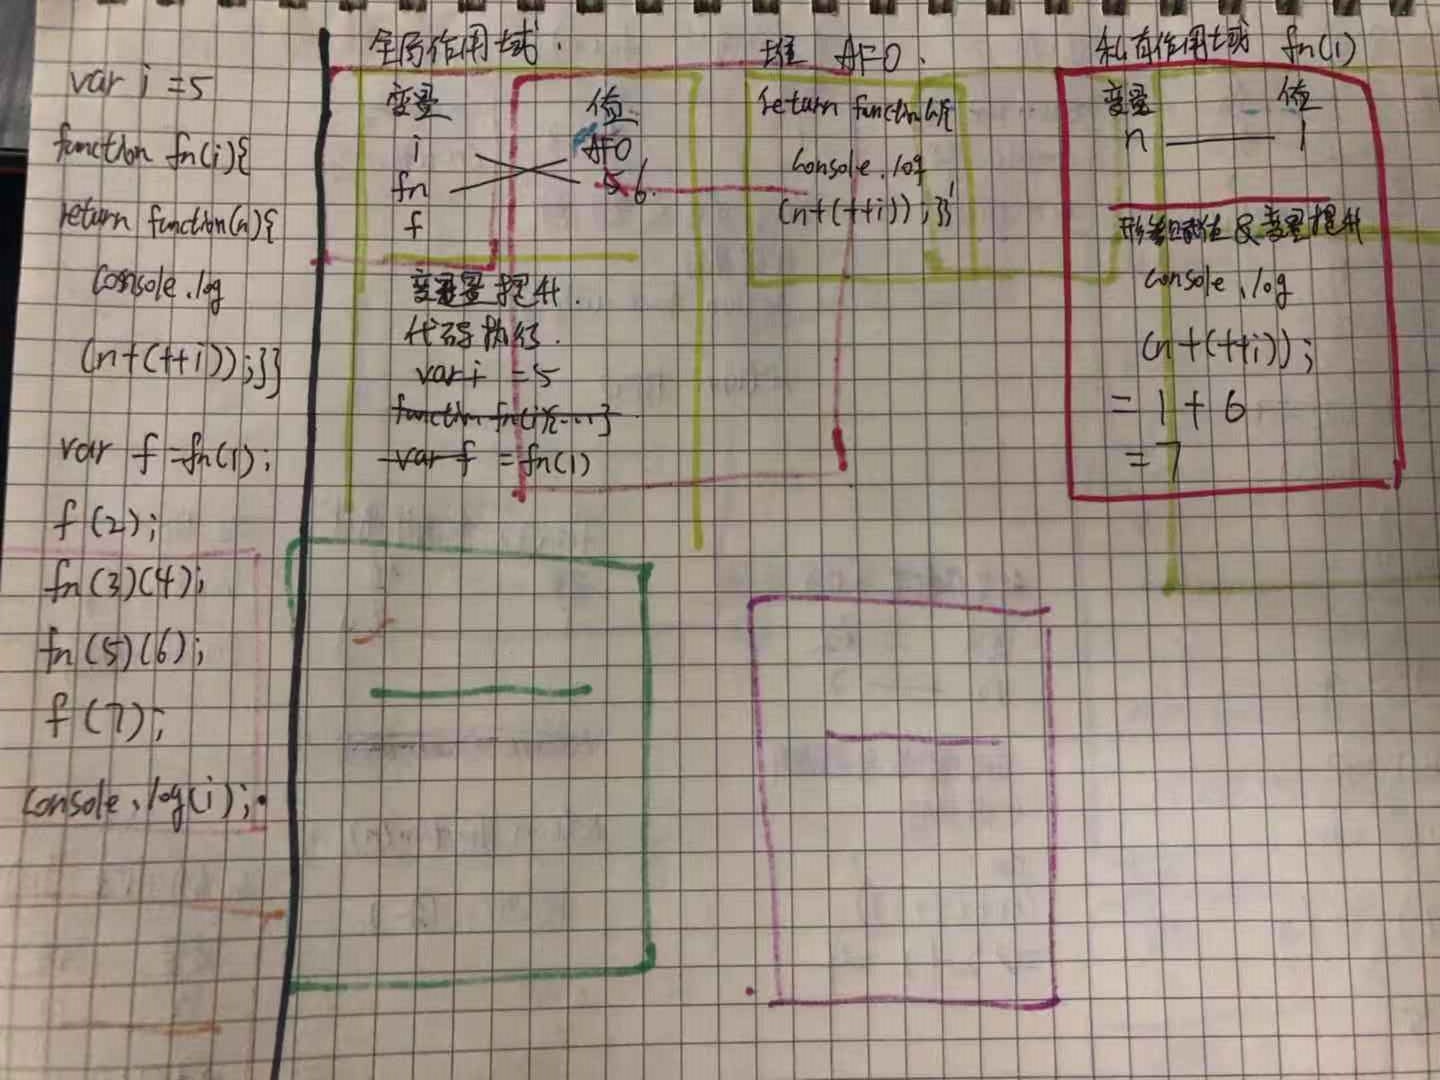 var i =5
function fn(i){
return function(n){
console.log
(n+(++i));}}
var f =fn(1);
f(2);
fn(3)(4);
fn(5)(6);
f(7);
console.log(i);
全局作用域.
变量 值
i AFO
fn 5 6.
f
变量提升.
代码执行.
var i =5
function fn(i){...}
var f = fn(1)
堆 AFO.
return function(n){
console.log
(n+(++i));}}
私有作用域 fn(1)
变量 值
n 1
形参赋值&变量提升
console.log
(n+(++i));
= 1+6
= 7